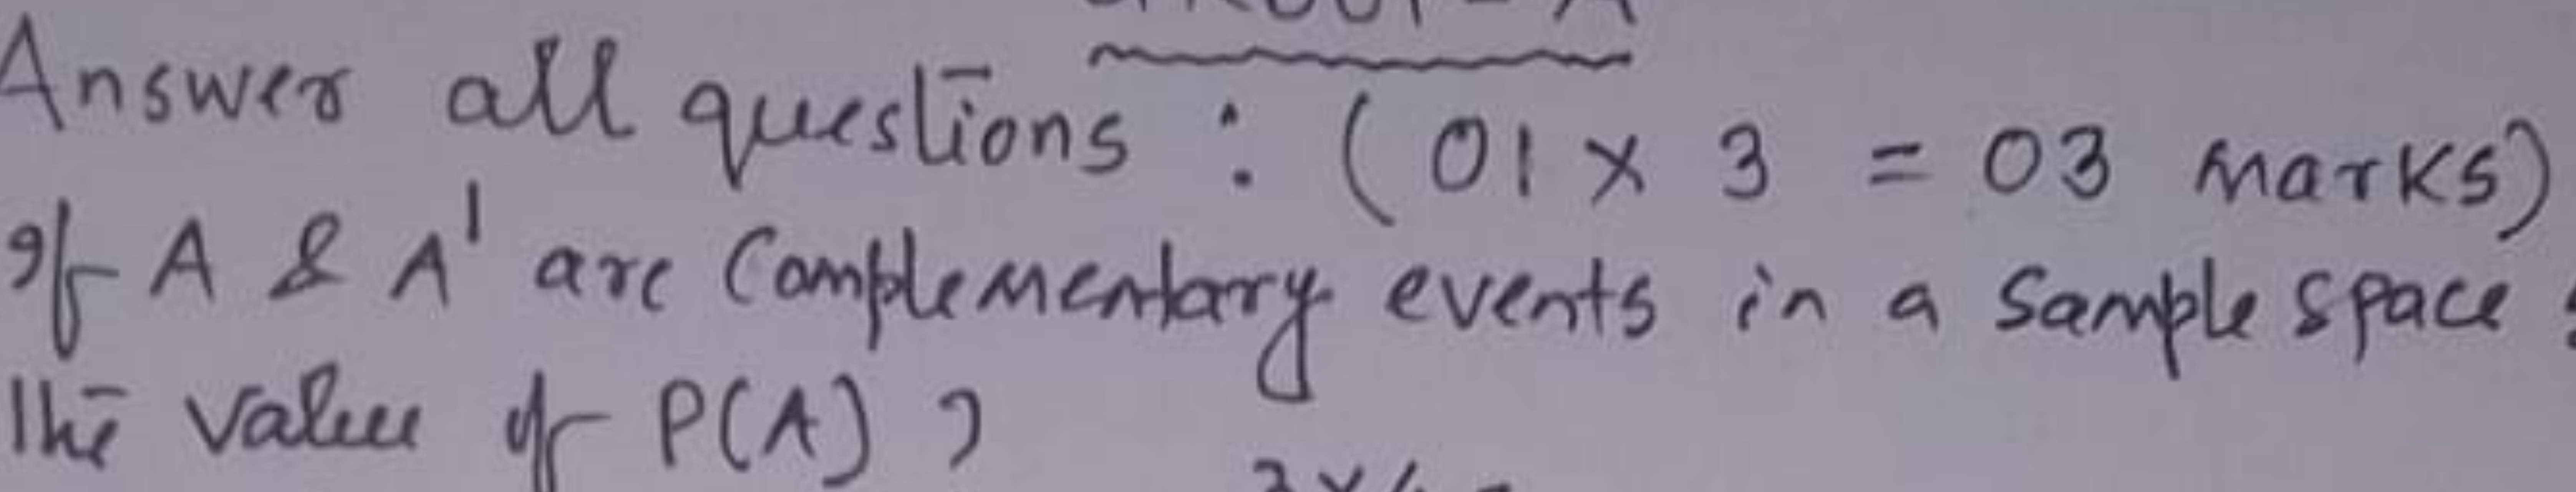 Answer all questions : (01 x 3 = 03 Marks)
If A & A' are Complementary events in a Sample space
The value of P(A) ?